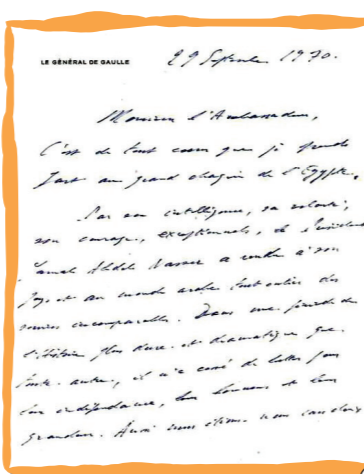 LE GÉNÉRAL DE GAULLE
29 Septembre 1970.
Monsieur l'Ambassadeur,
C'est de tout cœur que je prends
part au grand chagrin de l'Egypte.
Par son intelligence, sa volonté,
son courage, exceptionnels, le Président
Gamal Abdel Nasser a rendu à son
pays et au monde arabe tout entier des
services incomparables. Dans une période de
l'Histoire plus dure et dramatique que
toute autre, il n'a cessé de lutter pour
leur indépendance, leur honneur et leur
grandeur. Aussi nous étions-nous tous deux